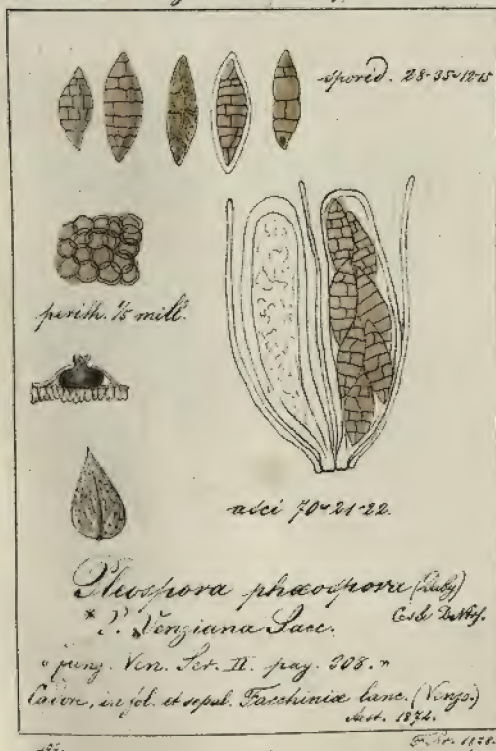 sporid. 28-35=12-15
perith. 1/5 mill.
asci 70=21-22.
Pleospora phæospora (Duby)
Ces & DeNtrs.
* P. Venziana Sacc.
" fung. Ven. Ser. II. pag. 308. "
in fol. et sepal. Facchiniæ lanc. (Venzo.)
Aest. 1872.